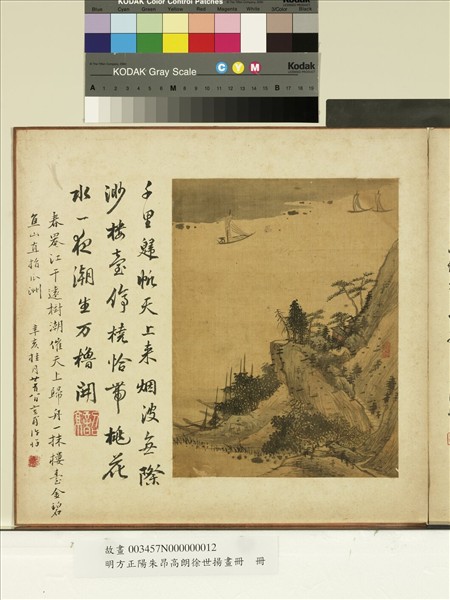 KODAK Color Control Patches
Blue Cyan Green Yellow Red Magenta White 3/Color Black
Kodak
KODAK Gray Scale
C Y M
Kodak
A 1 2 3 4 5 6 M 8 9 10 11 12 13 14 15 B 17 18 19
千里歸帆天上來烟波無際
渺樓臺停橈恰帶桃花
水一夜潮生萬櫓開
春暮江干遠樹潮催天上歸舟一抹樓臺金碧
魚山直指瓜洲
辛亥桂月廿
故畫 003457N000000012
明方正陽朱昂高朗徐世揚畫冊 冊